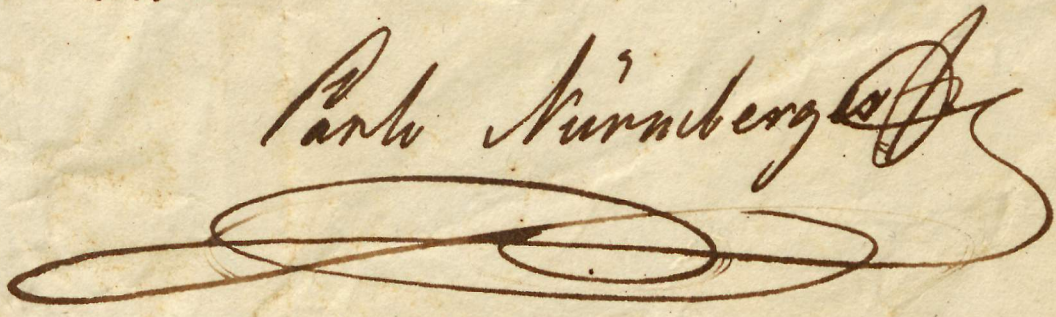 Pablo Nürnberger